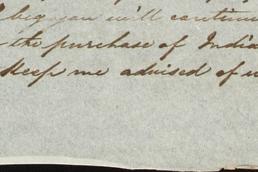 I beg you will continu
the purchase of India
Keep me advised of